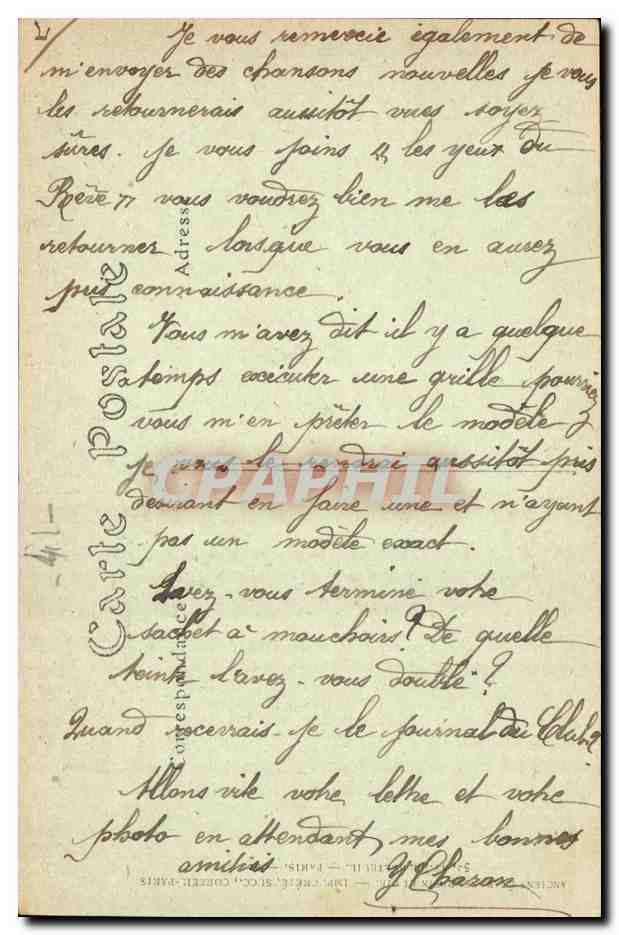 Je vous remercie également de
m'envoyer des chansons nouvelles je vous
les retournerais aussitôt vues soyez
sûres. Je vous joins " les yeux du
Rêve " vous voudrez bien me les
retourner lorsque vous en aurez
pris connaissance.
Vous m'avez dit il y a quelque
temps exécuter une grille pourriez
vous m'en prêter le modèle
je vous le rendrai aussitôt pris
désirant en faire une et n'ayant
pas un modèle exact.
Avez-vous terminé votre
sachet à mouchoirs? De quelle
teinte l'avez-vous doublé?
Quand recevrais-je le journal du Club?
Allons vite votre lettre et votre
photo en attendant, mes bonnes
amitiés Y Charon
Carte Postale
Correspondance
Adresse
CPAPHIL
IMP. CRÉTÉ, SUCC., CORBEIL-PARIS